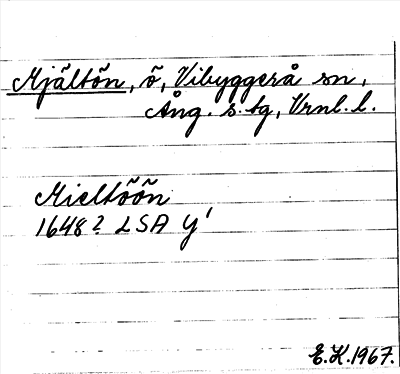 Mjältön, ö, Vibyggerå sn,
Ång. s. tg, Vrnl. l.
Mieltöön
1648? LSA Y'
E.K. 1967.